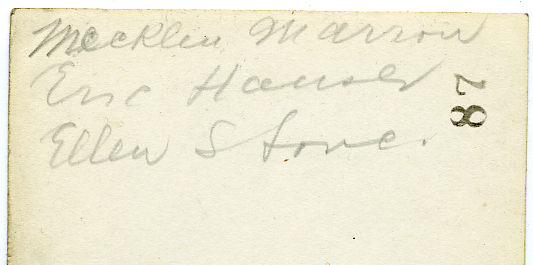 Mecklen Marrow
Eric Hauser
Ellen Stone.
87